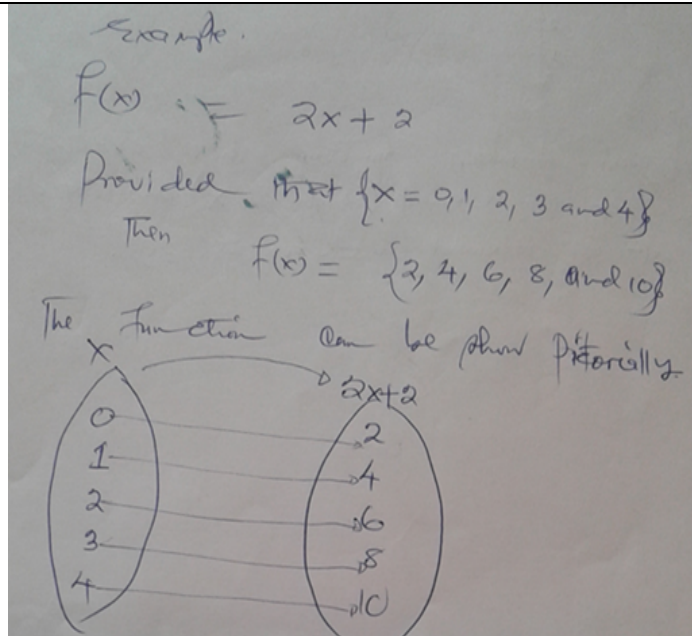 Example.
F(x) = 2x + 2
Provided that {x = 0, 1, 2, 3 and 4}
Then
F(x) = {2, 4, 6, 8, and 10}
The Function can be show Pictorially.
x
2x+2
0 2
1 4
2 6
3 8
4 10